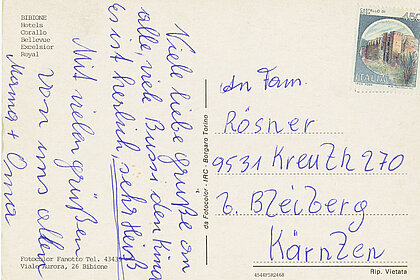 BIBIONE
Hotels
Corallo
Bellevue
Excelsior
Royal
Viele liebe grüße an
alle viele Bussi den Kinds
Es ist herlich, sehr heiß
Mit vielen grüßen
von uns allen
Mama + Oma
Fotocolor Fanotto Tel. 4343
Viale Aurora, 26 Bibione
da Fotocolor - IRC - Borgaro Torino
454BP5R2468
Rip. Vietata
ITALIA
An Fam.
Rösner
9531 Kreuth 270
b. Bleiberg
Kärnten